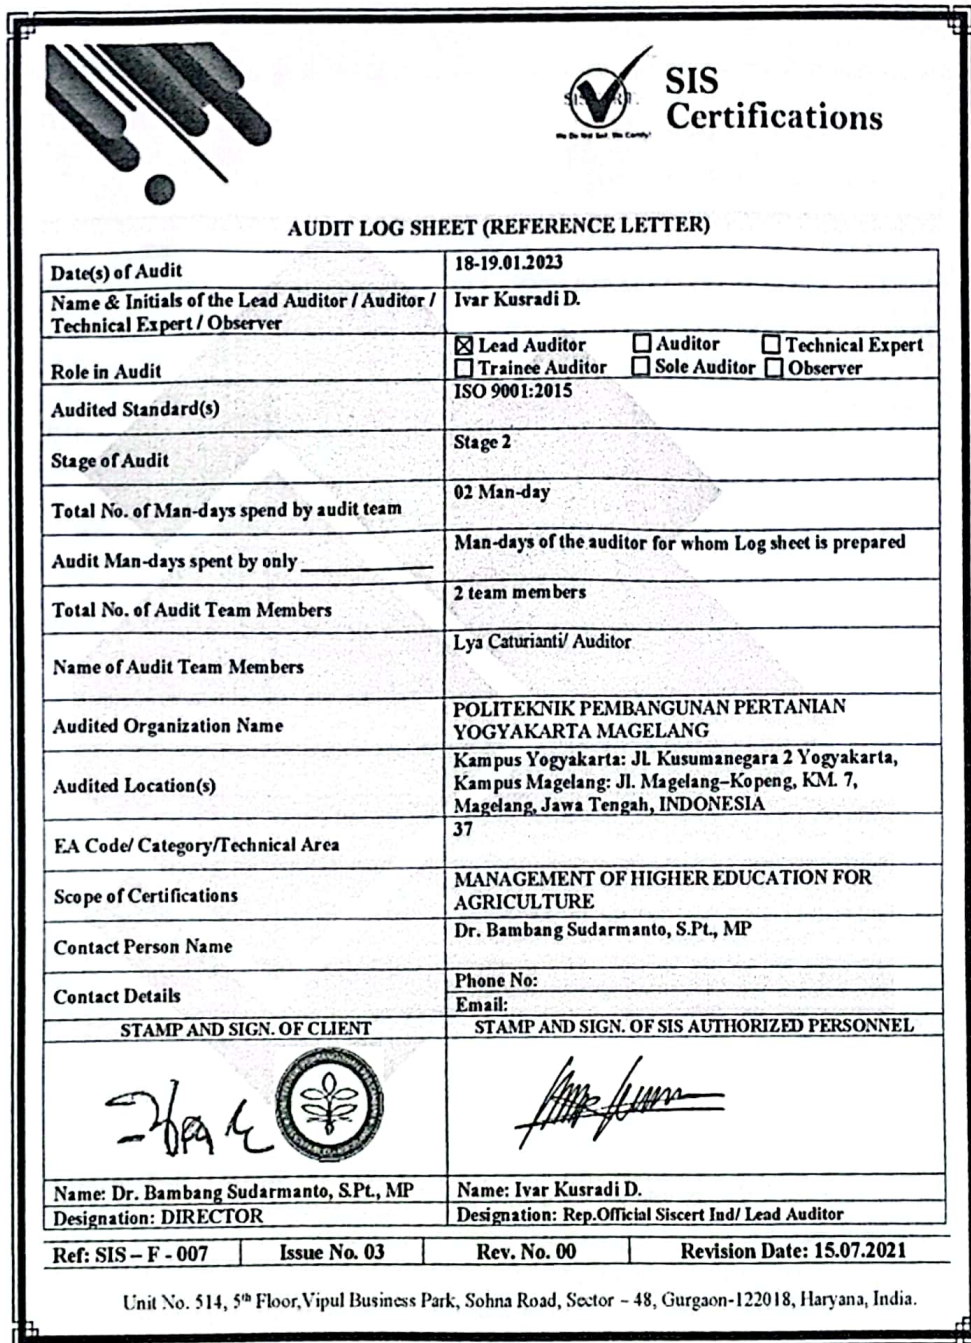 SIS
Certifications
We Do Not Sell. We Certify!
AUDIT LOG SHEET (REFERENCE LETTER)
Date(s) of Audit
18-19.01.2023
Name & Initials of the Lead Auditor / Auditor /
Technical Expert / Observer
Ivar Kusradi D.
Role in Audit
☒ Lead Auditor ☐ Auditor ☐ Technical Expert
☐ Trainee Auditor ☐ Sole Auditor ☐ Observer
Audited Standard(s)
ISO 9001:2015
Stage of Audit
Stage 2
Total No. of Man-days spend by audit team
02 Man-day
Audit Man-days spent by only ______________
Man-days of the auditor for whom Log sheet is prepared
Total No. of Audit Team Members
2 team members
Name of Audit Team Members
Lya Caturianti/ Auditor
Audited Organization Name
POLITEKNIK PEMBANGUNAN PERTANIAN
YOGYAKARTA MAGELANG
Audited Location(s)
Kampus Yogyakarta: Jl. Kusumanegara 2 Yogyakarta,
Kampus Magelang: Jl. Magelang–Kopeng, KM. 7,
Magelang, Jawa Tengah, INDONESIA
EA Code/ Category/Technical Area
37
Scope of Certifications
MANAGEMENT OF HIGHER EDUCATION FOR
AGRICULTURE
Contact Person Name
Dr. Bambang Sudarmanto, S.Pt., MP
Contact Details
Phone No:
Email:
STAMP AND SIGN. OF CLIENT
STAMP AND SIGN. OF SIS AUTHORIZED PERSONNEL
Name: Dr. Bambang Sudarmanto, S.Pt., MP
Name: Ivar Kusradi D.
Designation: DIRECTOR
Designation: Rep.Official Siscert Ind/ Lead Auditor
Ref: SIS – F - 007
Issue No. 03
Rev. No. 00
Revision Date: 15.07.2021
Unit No. 514, 5th Floor,Vipul Business Park, Sohna Road, Sector – 48, Gurgaon-122018, Haryana, India.